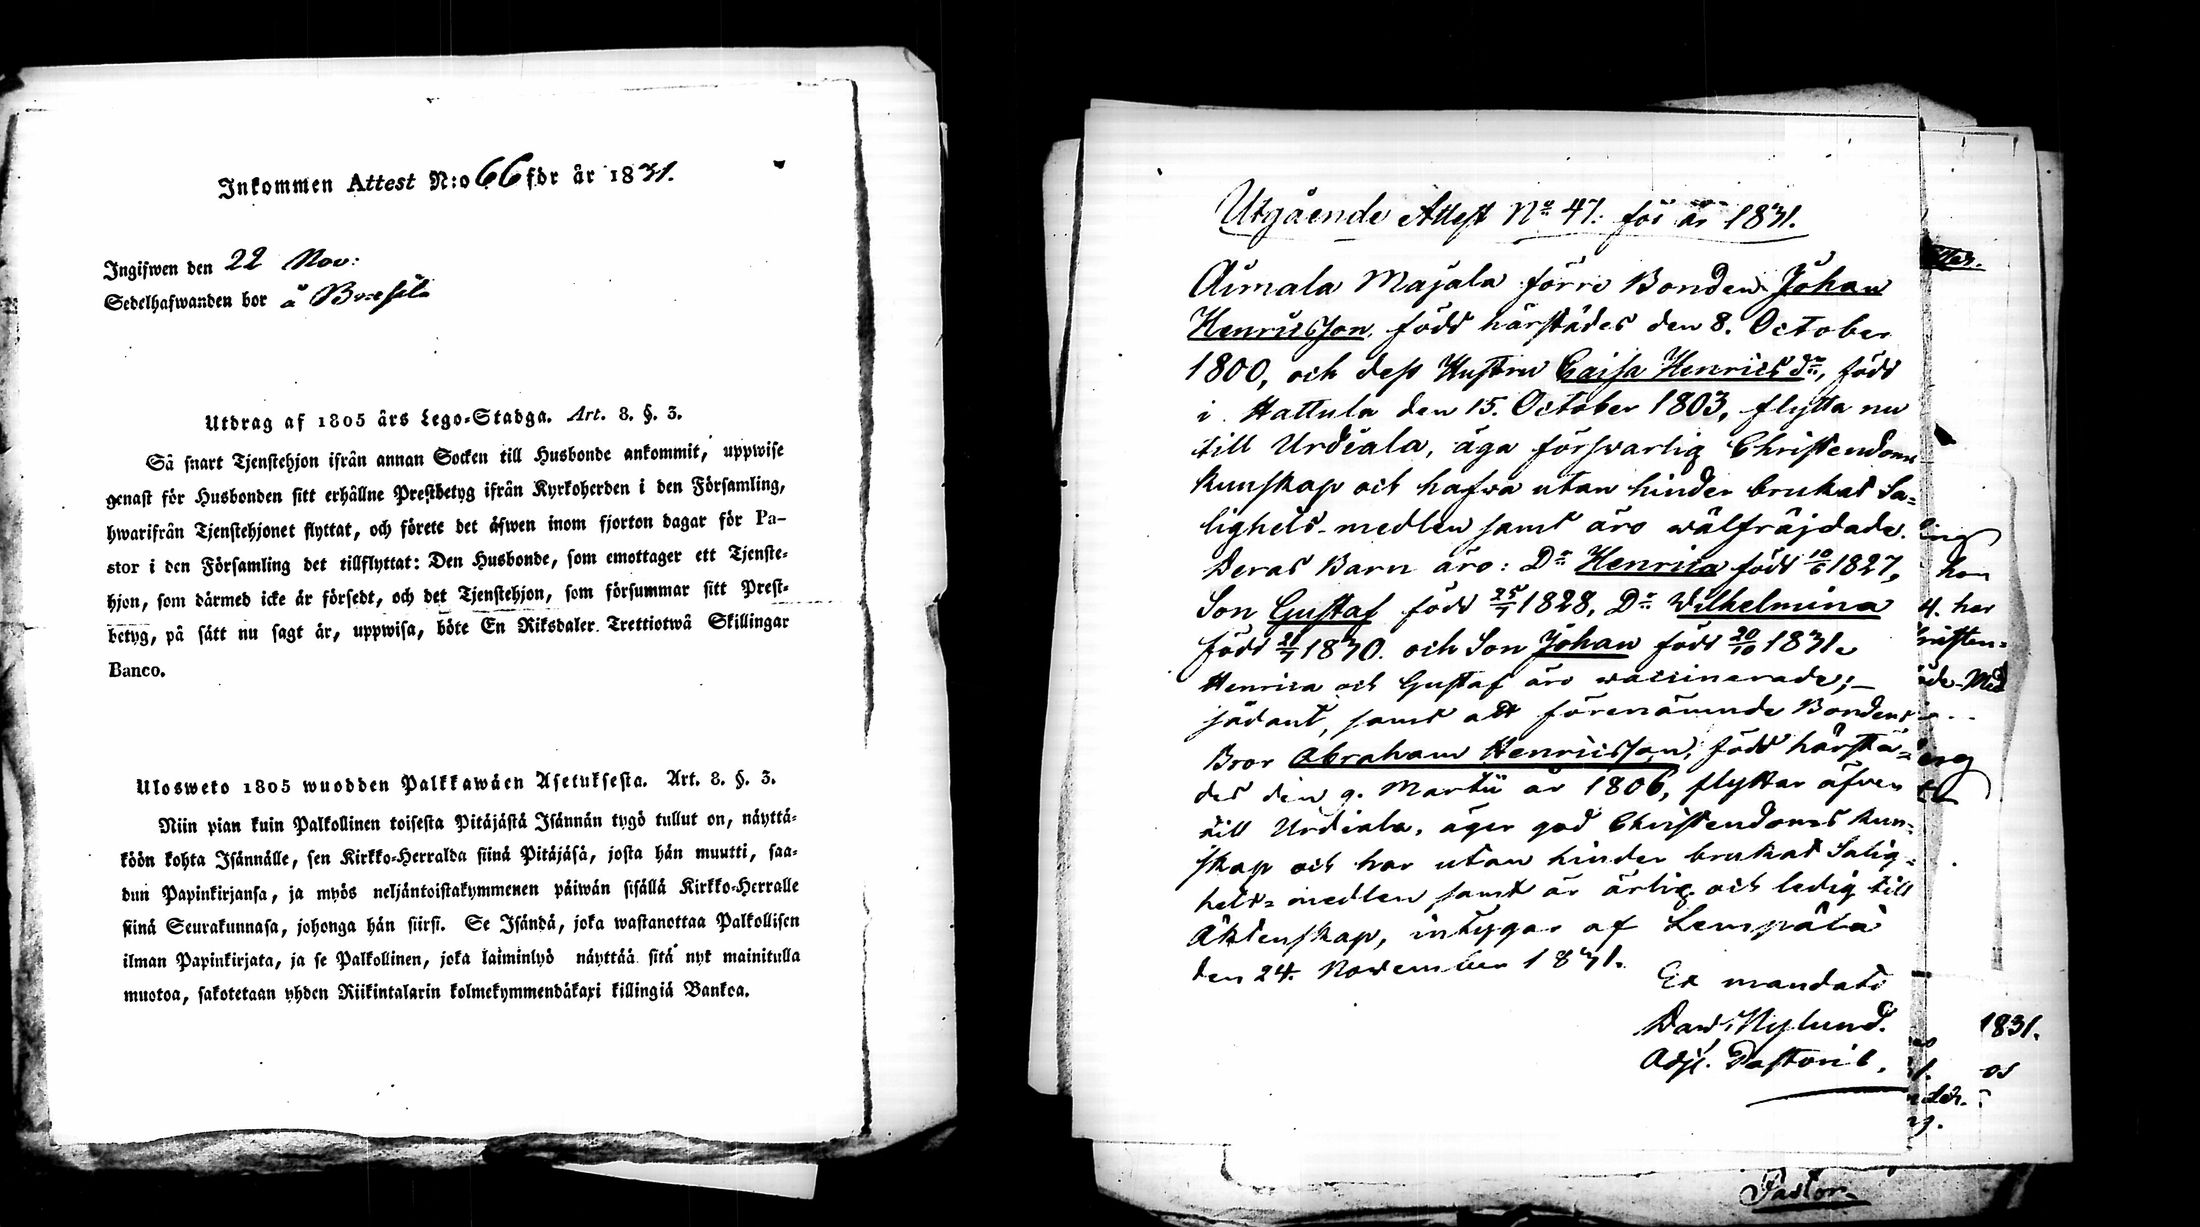 Inkommen Attest N:o 66 för år 1831.
Ingifwen den 22 Nov:
Sedelhafwanden bor å
Utdrag af 1805 års Lego-Stadga. Art. 8. §. 3.
Så snart Tjenstehjon ifrån annan Socken till Husbonde ankommit, uppwise
genast för Husbonden sitt erhållne Prestbetyg ifrån Kyrkoherden i den Församling,
hwarifrån Tjenstehjonet flyttat, och förete det äfwen inom fjorton dagar för Pa-
stor i den Församling det tillflyttat: Den Husbonde, som emottager ett Tjenste-
hjon, som därmed icke är försedt, och det Tjenstehjon, som försummar sitt Prest-
betyg, på sätt nu sagt är, uppwisa, böte En Riksdaler Trettiotwå Skillingar
Banco.
Ulosweto 1805 wuodden Palkkawäen Asetuksesta. Art. 8. §. 3.
Niin pian kuin Palkollinen toisesta Pitäjästä Isännän tygö tullut on, näyttä-
köön kohta Isännälle, sen Kirkko-Herralda siinä Pitäjäsä, josta hän muutti, saa-
dun Papinkirjansa, ja myös neljäntoistakymmenen päiwän sisällä Kirkko-Herralle
siinä Seurakunnasa, johonga hän siirsi. Se Isändä, joka wastanottaa Palkollisen
ilman Papinkirjata, ja se Palkollinen, joka laiminlyö näyttää sitä nyt mainitulla
muotoa, sakotetaan yhden Riikintalarin kolmekymmendäkaxi killingiä Bankoa.
Utgående Attest No 47. för år 1831.
Aimala Majala förre Bonden Johan
Henricsson, född härstädes den 8. October
1800, och dess Hustru Caisa Henricsdr, född
i Hattula den 15. October 1803, flytta nu
till Urdiala, äga förswarlig Christendoms
kunskap och hafwa utan hinder brukat Sa-
lighets-medlen samt äro wälfräjdade.
Deras Barn äro: Dr Henrica född 10/6 1827,
Son Gustaf född 25/7 1828, Dr Wilhelmina
född 21/7 1830. och Son Johan född 20/10 1831.
Henrica och Gustaf äro waccinerade;—
sådant, samt att förenämnde Bondens
Bror Abraham Henricsson, född härstä-
des den 9. Martii år 1806, flyttar äfven
till Urdiala, äger god Christendoms kun-
skap och har utan hinder brukat Salig-
hets-medlen samt är ärlig och ledig till
Äktenskap, intygar af Lempälä
den 24. November 1831.
Ex mandato
Dav: Nylund.
Adj. Pastoris.
han
4. har
1831.
Pastor